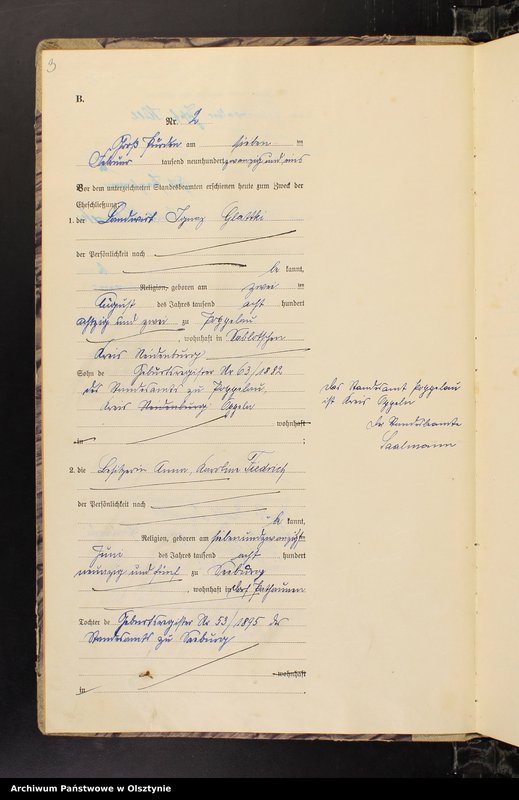 3
B.
Nr. 2
Groß Purden am sieben ten
Februar tausend neunhundert zwanzig und eins
Vor dem unterzeichneten Standesbeamten erschienen heute zum Zweck der
Eheschließung:
1. der Landwirt Ignaz
der Persönlichkeit nach
be kannt,
Religion, geboren am zwei ten
August des Jahres tausend acht hundert
achtzig und zwei zu Poppelau
, wohnhaft in
Kreis Neidenburg
Sohn de Geburtsregister Nr 63/1882
des Standesamts zu Poppelau
Kreis Neidenburg Oppeln
wohnhaft
in ;
Das Standesamt Poppelau
ist Kreis Oppeln
Der Standesbeamte
Saalmann
2. die Besitzerin Anna, Karoline
der Persönlichkeit nach
be kannt,
Religion, geboren am siebenundzwanzigsten
Juni des Jahres tausend acht hundert
neunzig und fünf zu Seeburg
, wohnhaft in
Tochter de Geburtsregister Nr 53/1895 des
Standesamts zu Seeburg
wohnhaft
in .
Archiwum Państwowe w Olsztynie